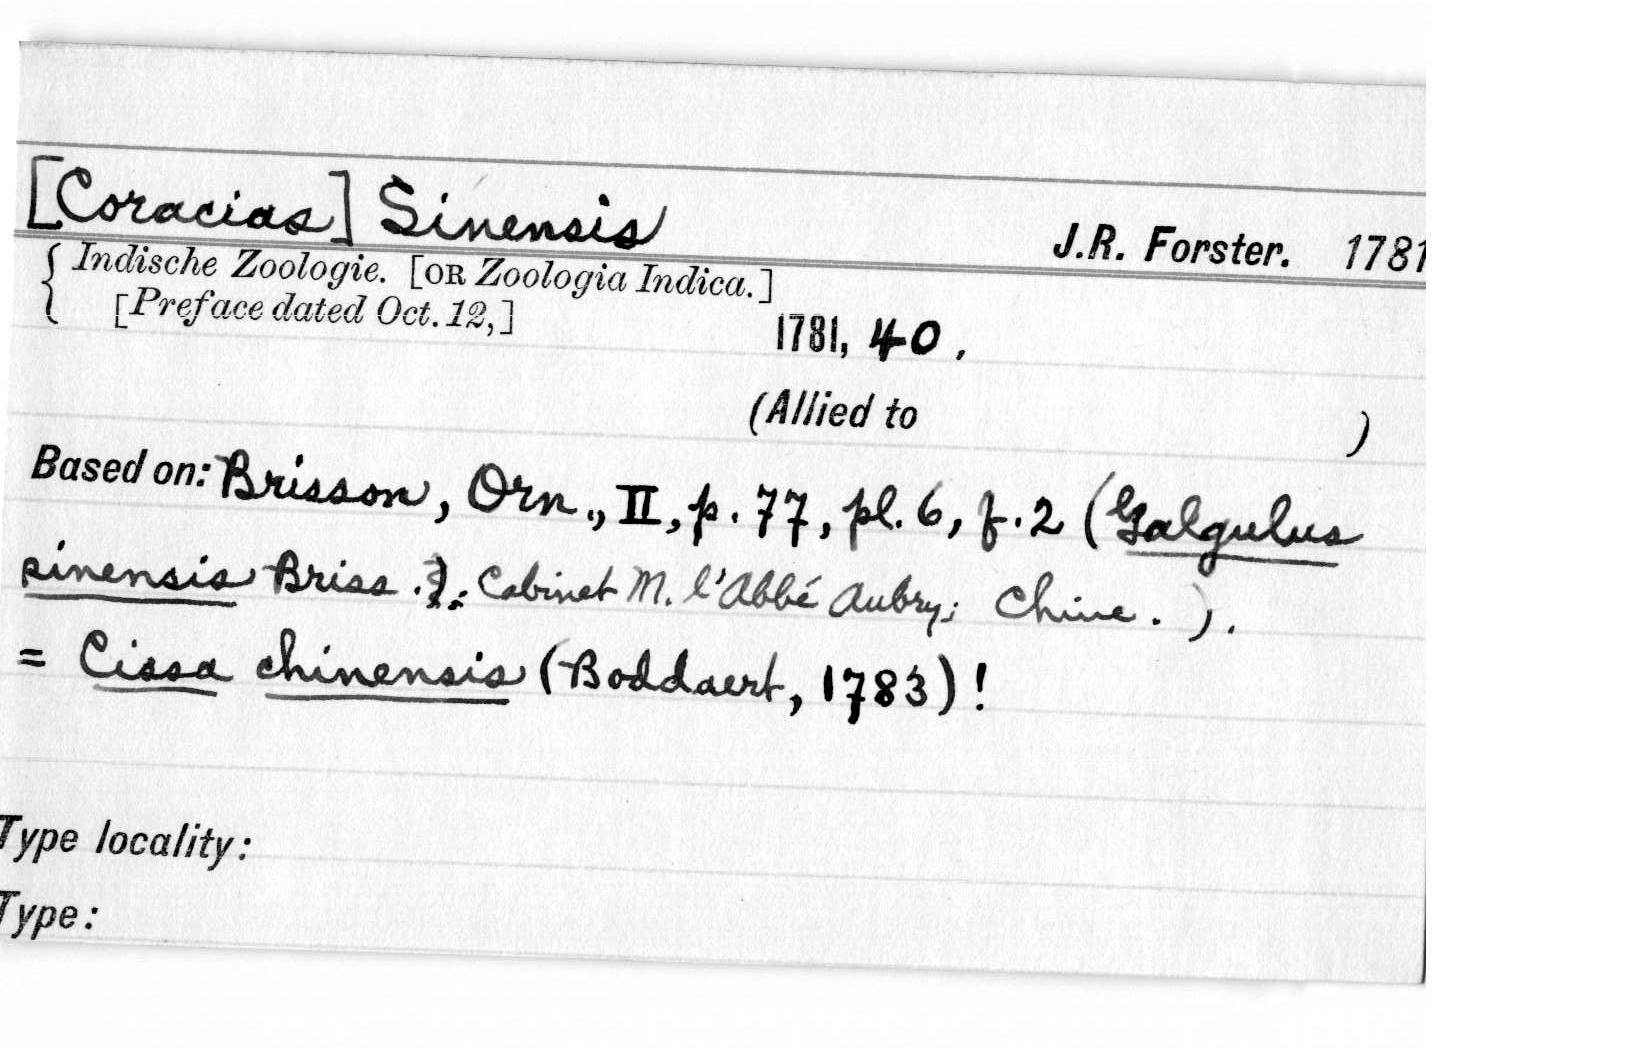 [Coracias] Sinensis J.R. Forster. 1781
{ Indische Zoologie. [OR Zoologia Indica.]
[Preface dated Oct. 12,] 1781, 40.
(Allied to )
Based on: Brisson, Orn., II, p. 77, pl. 6, f. 2 (Galgulus
sinensis Briss.: Cabinet M. l'Abbé Aubry; Chine.).
= Cissa chinensis (Boddaert, 1783)!
Type locality:
Type: